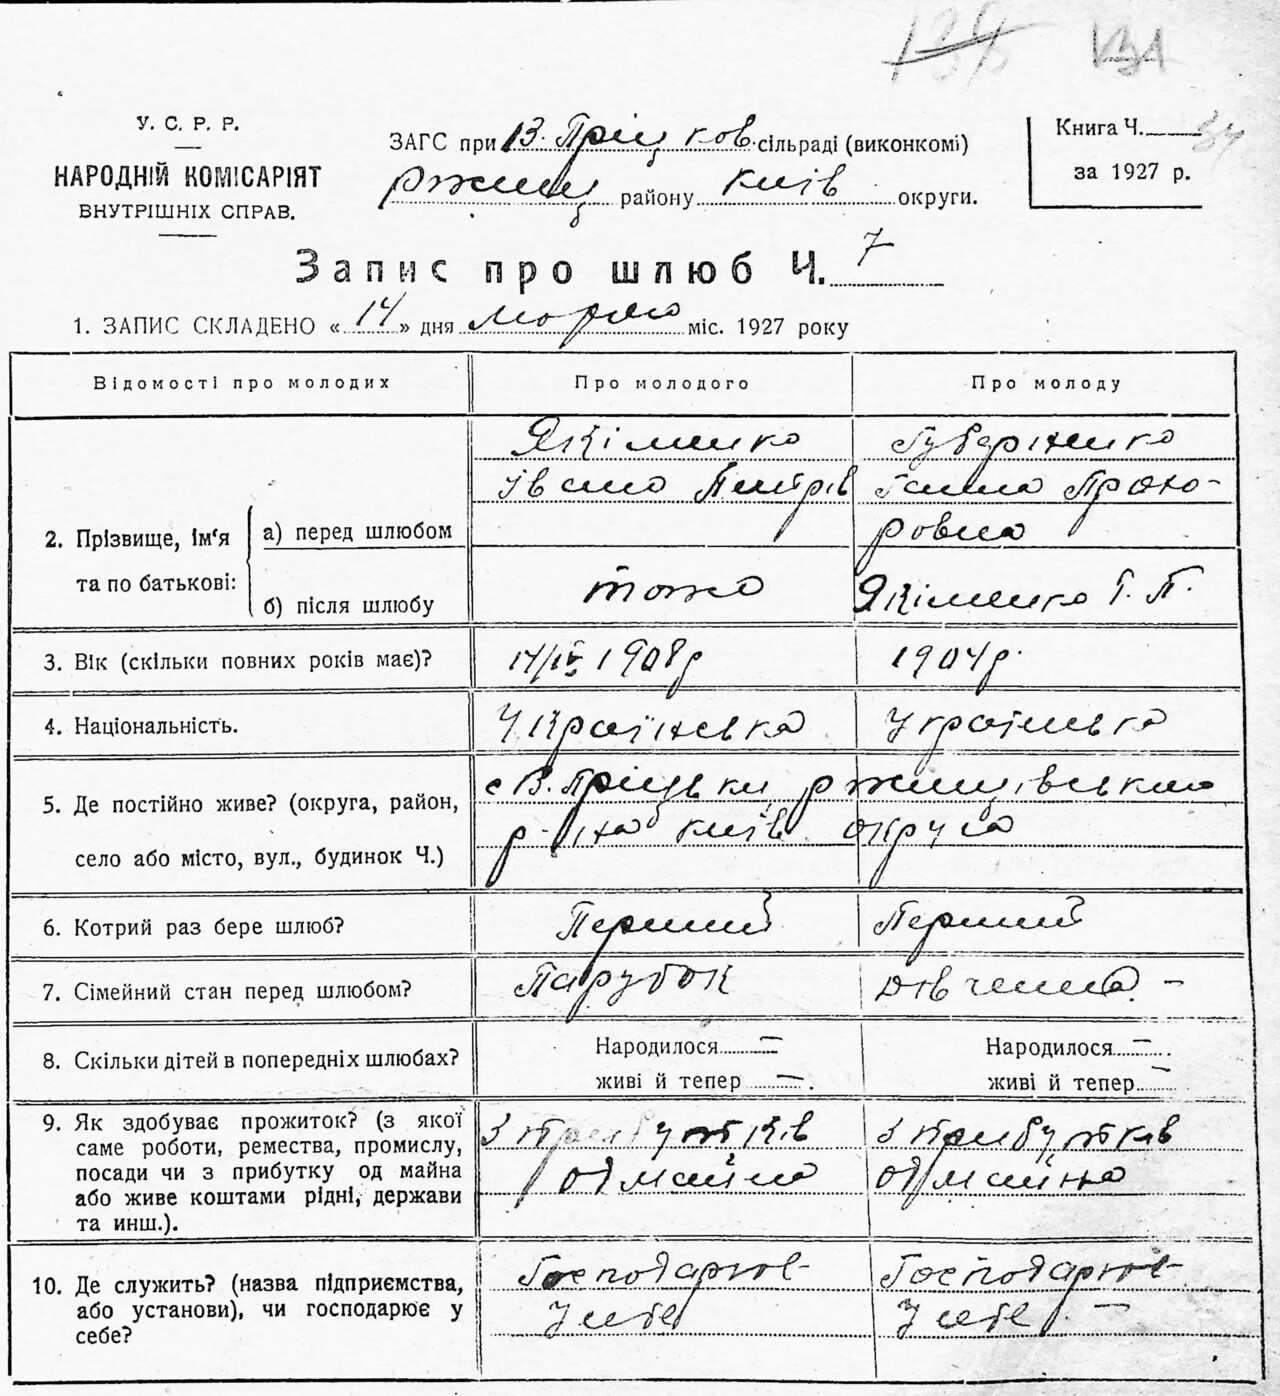 131
У. С. Р. Р.
НАРОДНІЙ КОМІСАРІЯТ
ВНУТРІШНІХ СПРАВ.
ЗАГС при В. Пріцков сільраді (виконкомі)
Ржищ району Київ округи.
Книга Ч. 34
за 1927 р.
Запис про шлюб Ч. 7
1. ЗАПИС СКЛАДЕНО « 14 » дня марта міс. 1927 року
Відомості про молодих Про молодого Про молоду
2. Прізвище, ім'я та по батькові:
а) перед шлюбом
Якіменко
Івано Питрів
Губаріженко
Ганна Прохо-
ровна
б) після шлюбу тоже Якіменко Г. П.
3. Вік (скільки повних років має)? 14/IV 1908р 1904р.
4. Національність. Українська Українська
5. Де постійно живе? (округа, район,
село або місто, вул., будинок Ч.)
с В. Пріцьки Ржищівського
р-на Київ округа
6. Котрий раз бере шлюб? Перший Перший
7. Сімейний стан перед шлюбом? Парубок Дівчина –
8. Скільки дітей в попередніх шлюбах? Народилося — Народилося —
живі й тепер — живі й тепер —
9. Як здобуває прожиток? (з якої
саме роботи, ремества, промислу,
посади чи з прибутку од майна
або живе коштами рідні, держави
та инш.).
З прибутків
од майна
З прибутків
од майна
10. Де служить? (назва підприємства,
або установи), чи господарює у
себе?
Господарює
у себе
Господарює
у себе –